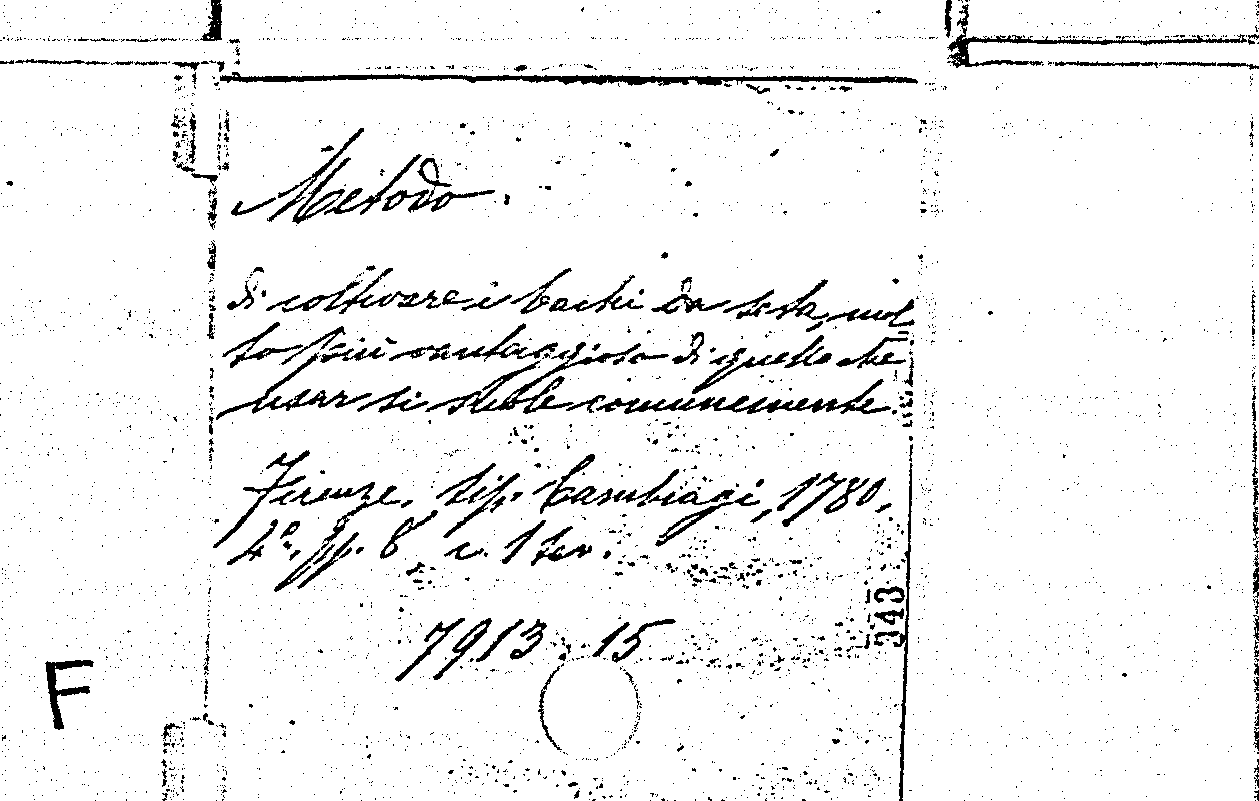 Metodo.
di coltivare i bachi da seta, mol
to più vantaggioso di quello che
usar si suole comunemente.
Firenze, tip. Cambiagi, 1780.
4º. pp. 8 c. 1 tav.
7913. 15
343
F